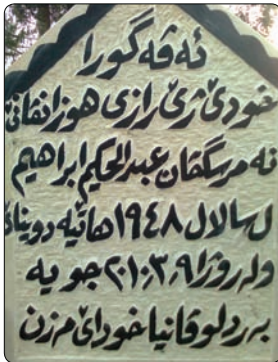 ئەڤە گورا
خودێ ژێ رازی هوزانڤانێ
نەمر سگڤان عبدالحکیم ابراهیم
ل سالا ل ١٩٤٨ هاتیە دونیادێ
و ل روژا ٢٠١٠.٣.٩ چویە
بەر دلوڤانیا خودایێ مەزن